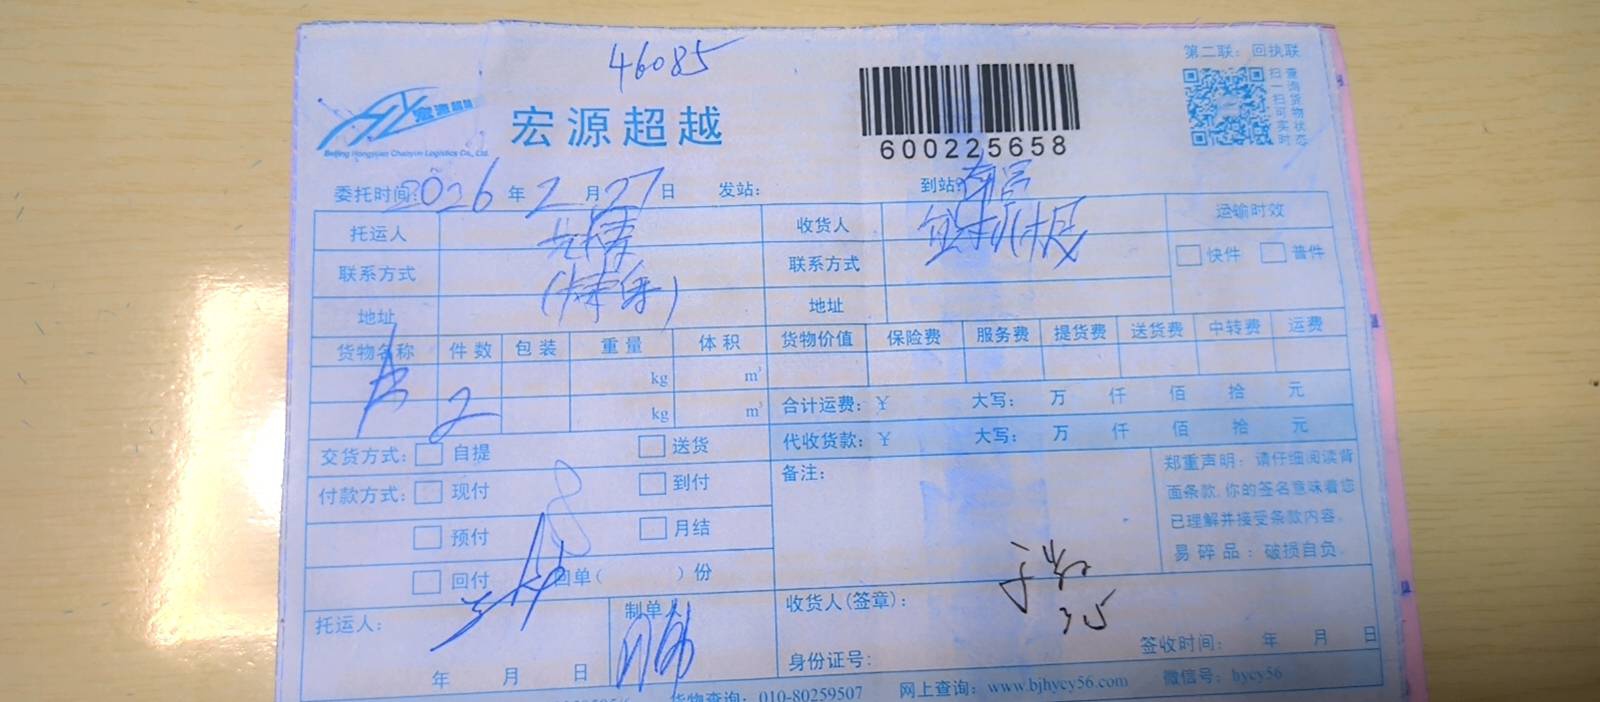 46085
第二联：回执联
扫一扫可实时
查询货物状态
宏源超越
Beijing Hongyuan Chaoyue Logistics Co., Ltd.
宏源超越
600225658
委托时间：2026年2月27日 发站： 到站：南宫
托运人 收货人 运输时效
联系方式 联系方式 快件 普件
地址 地址
货物名称 件数 包装 重量 体积 货物价值 保险费 服务费 提货费 送货费 中转费 运费
kg m³
2 kg m³ 合计运费：¥ 大写： 万 仟 佰 拾 元
交货方式： 自提 送货 代收货款：¥ 大写： 万 仟 佰 拾 元
付款方式： 现付 到付 备注：
预付 月结
回付 回单( )份
郑重声明：请仔细阅读背
面条款，你的签名意味着您
已理解并接受条款内容。
易碎品：破损自负
托运人： 制单人 收货人(签章)：
35
年 月 日 身份证号： 签收时间： 年 月 日
货物查询：010-80259507 网上查询：www.bjhycy56.com 微信号：hycy56